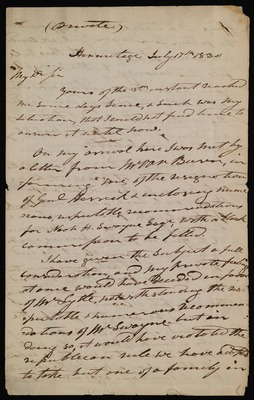 (Private)
Hermitage July 17th 1830
My Dr Sir
yours of the 3rd instant reached
me some days since, & such was my
situation, that I could not find time to
answer it until now.
On my arrival here I was met by
a letter from Mr Van Buren, in
forming me, of the resignation
of Genl Herrick & enclosing nume
rous, respectable recommendations
for Noah H. Swayne Esqr with a blank
commission to be filled.
I have given the subject a full
consideration and my private feelings
at once would have decided in favour
of Mr Lytle, notwithstanding the res
pectable & numerous recommen
dations of Mr Swayne but in
doing so, it would have violated the
republican rule we have adopted
to take but one of a family in